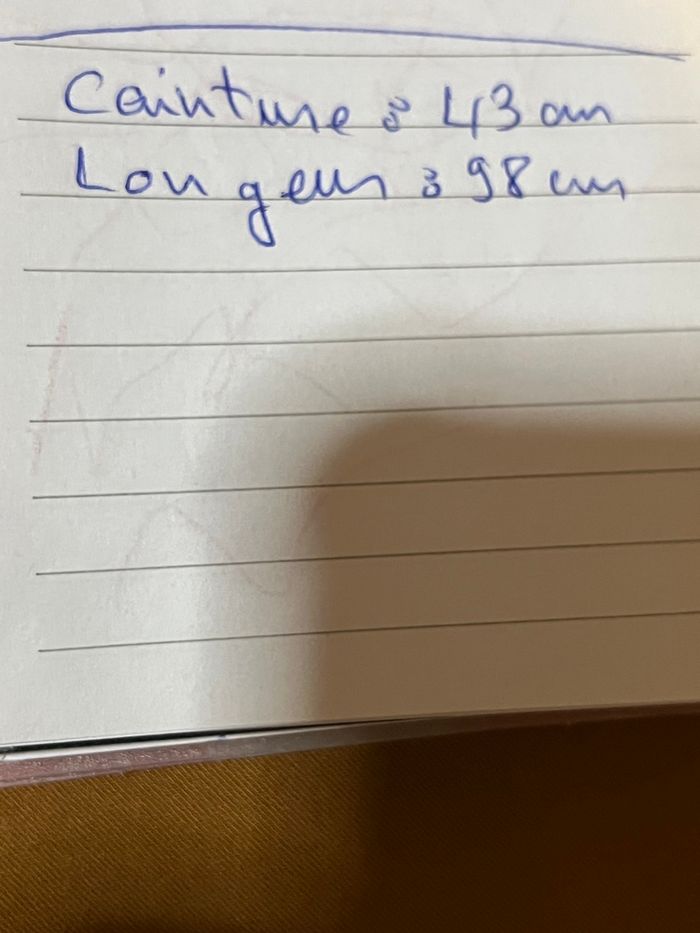 Ceinture : 43 cm
Longeur : 98 cm